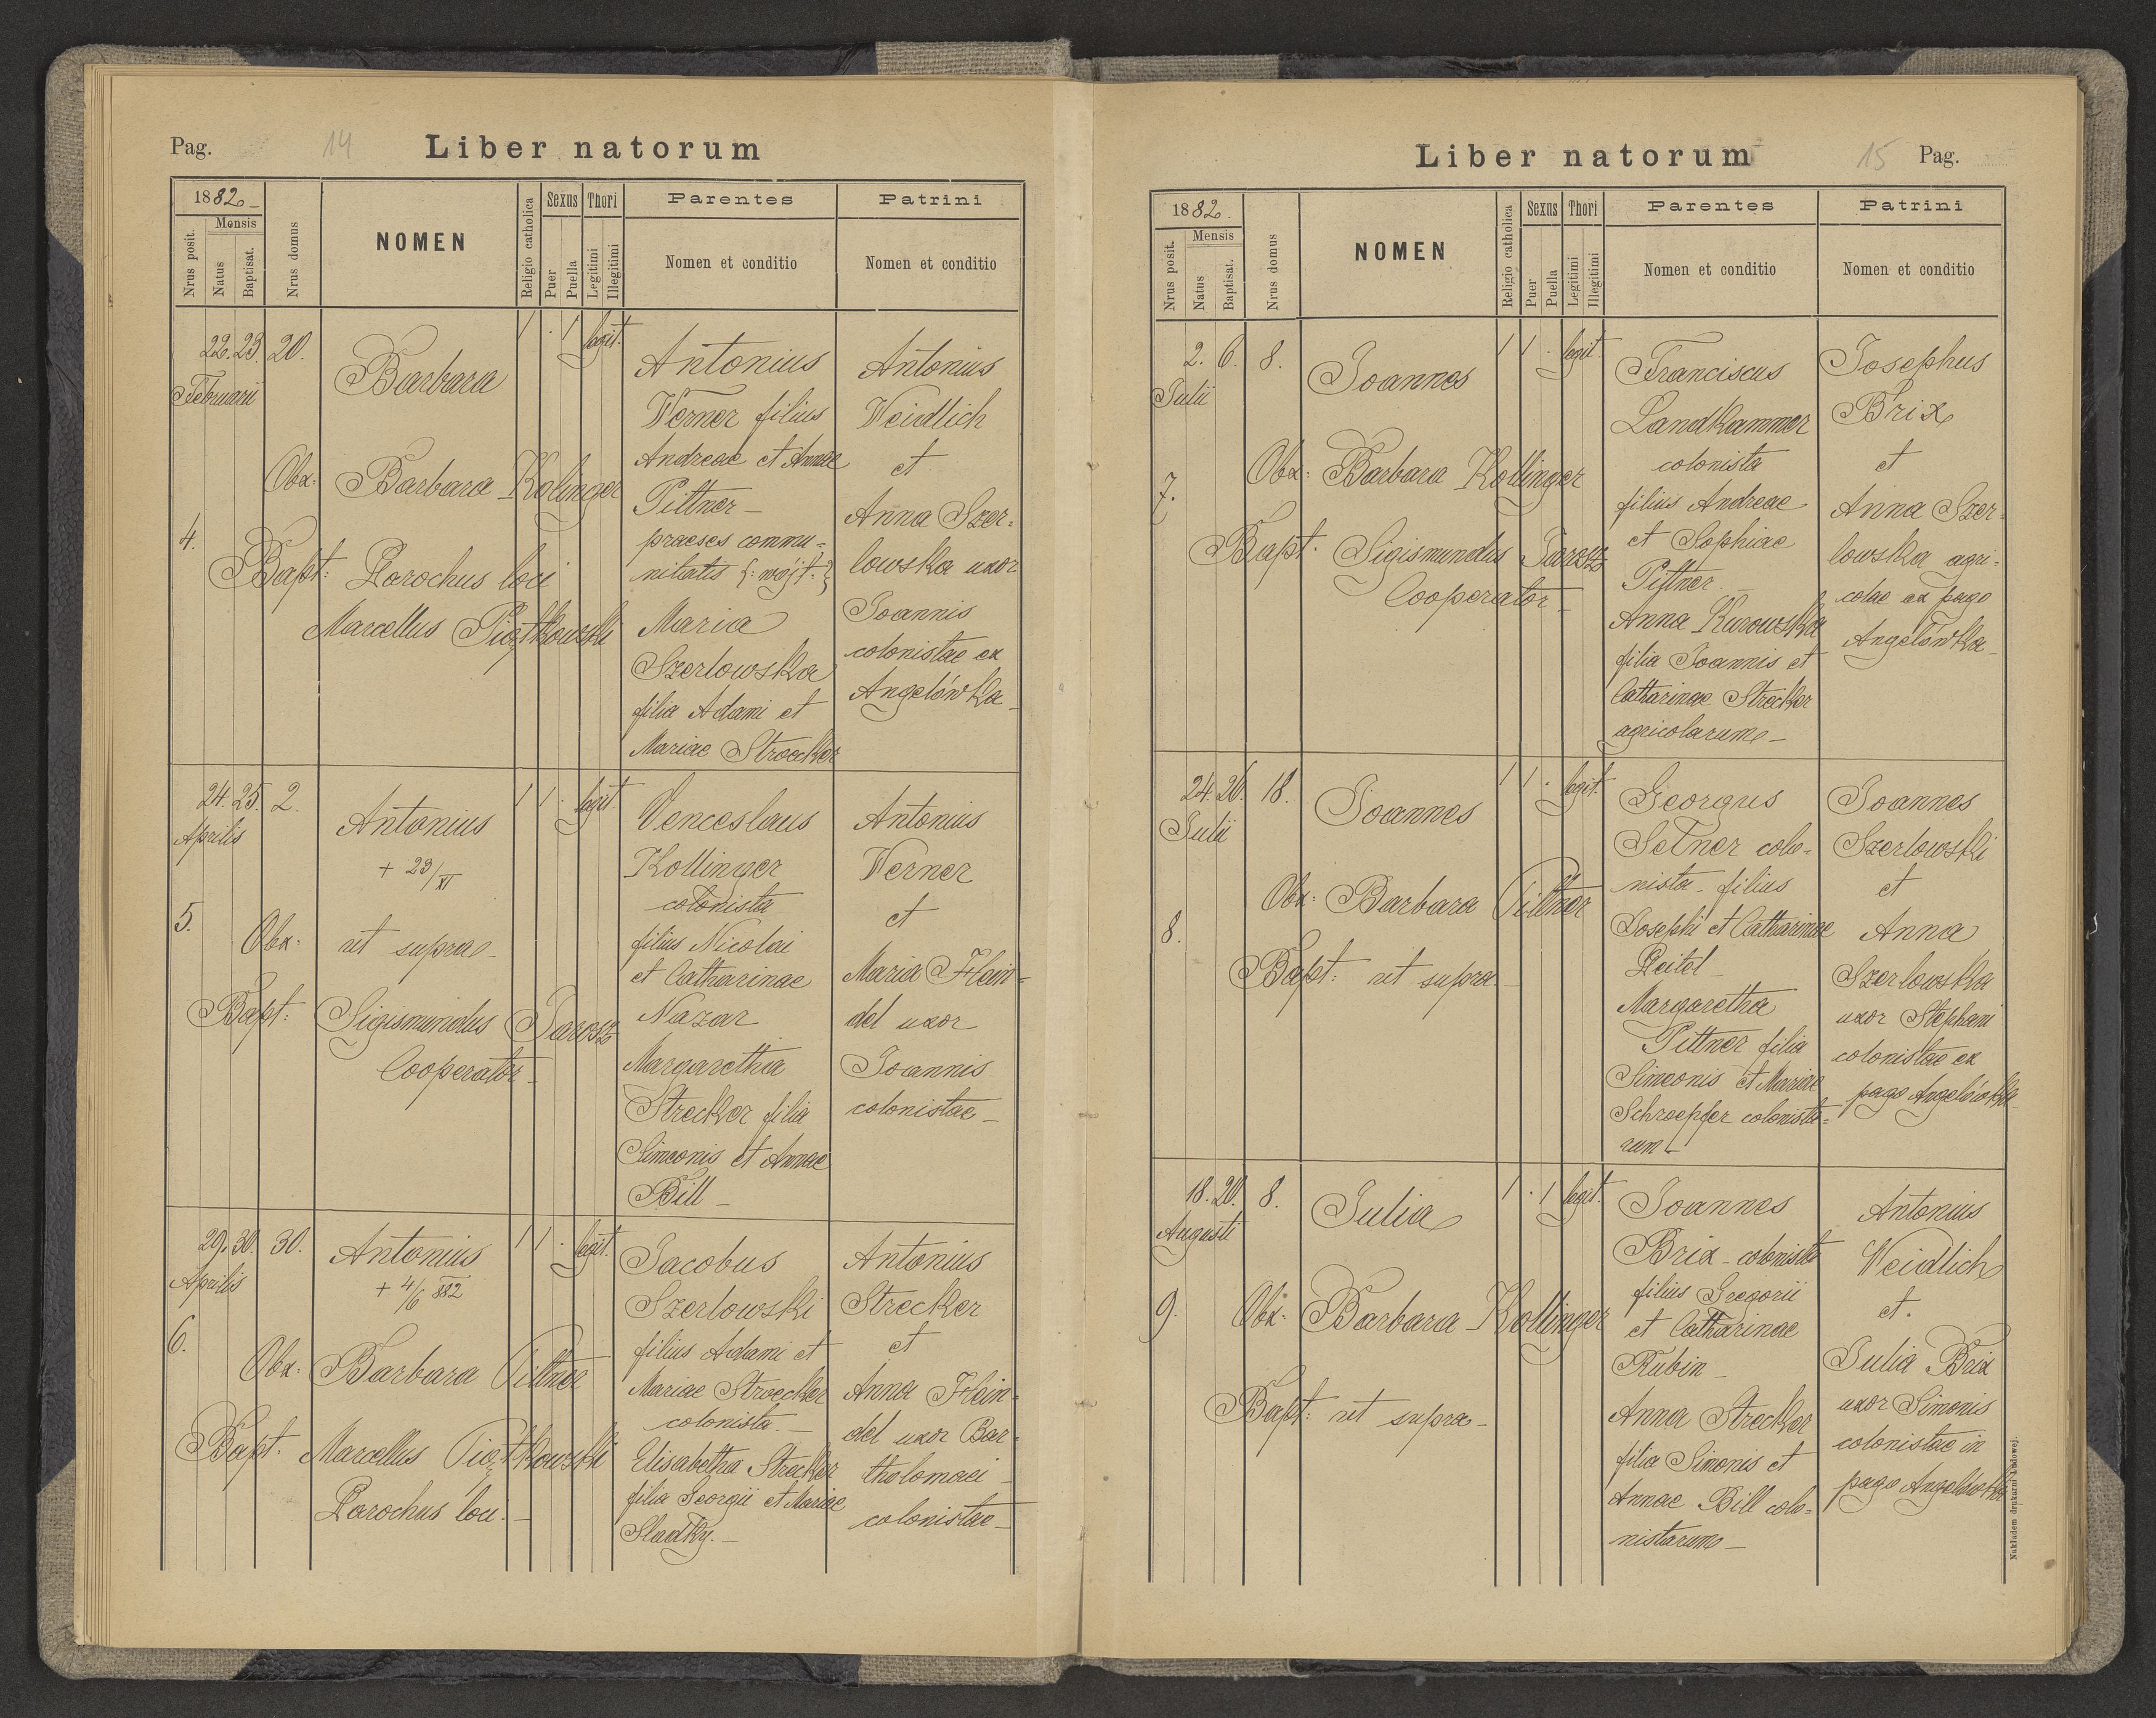 Pag. 14 Liber natorum
1882
Nrus posit.
Mensis
Natus
Baptisat.
Nrus domus
NOMEN
Religio catholica
Sexus
Puer
Puella
Thori
Legitimi
Illegitimi
Parentes
Nomen et conditio
Patrini
Nomen et conditio
4.
22. 23. 20.
Februarii
Barbara
Obx: Barbara Kolinger
Bapt: Parochus loci
Marcellus Piątkowski
1 . 1 legit.
Antonius
Werner filius
Andreae et Annae
Pittner –
praeses commu=
nitatis {: wójt :}
Maria
Szerlowska
filia Adami et
Mariae Stroecker
Antonius
Weidlich
et
Anna Szer=
lowska uxor
Joannis
colonistae ex
Angelówka –
5.
24. 25. 2.
Aprilis
Antonius
+ 23/XI
Obx: ut supra –
Bapt: Sigismundus Jarosz
Cooperator –
1 1 . legit.
Venceslaus
Kollinger
colonista
filius Nicolai
et Catharinae
Nazar
Margaretha
Strecker filia
Simeonis et Annae
Bill –
Antonius
Werner
et
Maria Hein=
del uxor
Joannis
colonistae –
6.
29. 30. 30.
Aprilis
Antonius
+ 4/6 882
Obx: Barbara Pittner
Bapt: Marcellus Piątkowski
Parochus loci –
1 1 . legit.
Jacobus
Szerlowski
filius Adami et
Mariae Stroecker
colonista. –
Elisabetha Strecker
filia Georgii et Mariae
Sladky. –
Antonius
Strecker
et
Anna Hein=
del uxor Bar=
tholomaei
colonistae –
Liber natorum 15 Pag.
1882.
Nrus posit.
Mensis
Natus
Baptisat.
Nrus domus
NOMEN
Religio catholica
Sexus
Puer
Puella
Thori
Legitimi
Illegitimi
Parentes
Nomen et conditio
Patrini
Nomen et conditio
7.
2. 6. 8.
Julii
Joannes
Obx: Barbara Kollinger
Bapt: Sigismundus Jarosz
Cooperator –
1 1 . legit.
Franciscus
Landkammer
colonista
filius Andreae
et Sophiae
Pittner –
Anna Kurowska
filia Joannis et
Catharinae Strecker
agricolarum –
Josephus
Brix
et
Anna Szer=
lowska agri=
colae ex pago
Angelówka –
8.
24. 26. 18.
Julii
Joannes
Obx: Barbara Pittner
Bapt: ut supra –
1 1 . legit.
Georgius
Setner colo=
nista – filius
Josephi et Catharinae
Peitel –
Margaretha
Pittner filia
Simeonis et Mariae
Schroepfer colonista=
rum
Joannes
Szerlowski
et
Anna
Szerlowska
uxor Stephani
colonistae ex
pago Angelówka –
9.
18. 20. 8.
Augusti
Julia
Obx: Barbara Kollinger
Bapt: ut supra –
1 . 1 legit.
Joannes
Brix – colonista
filius Gregorii
et Catharinae
Rubin –
Anna Strecker
filia Simonis et
Annae Bill colo=
nistarum –
Antonius
Weidlich
et.
Julia Brix
uxor Simonis
colonistae in
pago Angelówka
Nakładem drukarni Ludowej.